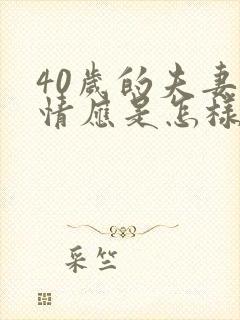 40岁的夫妻
情应是怎样
采竺